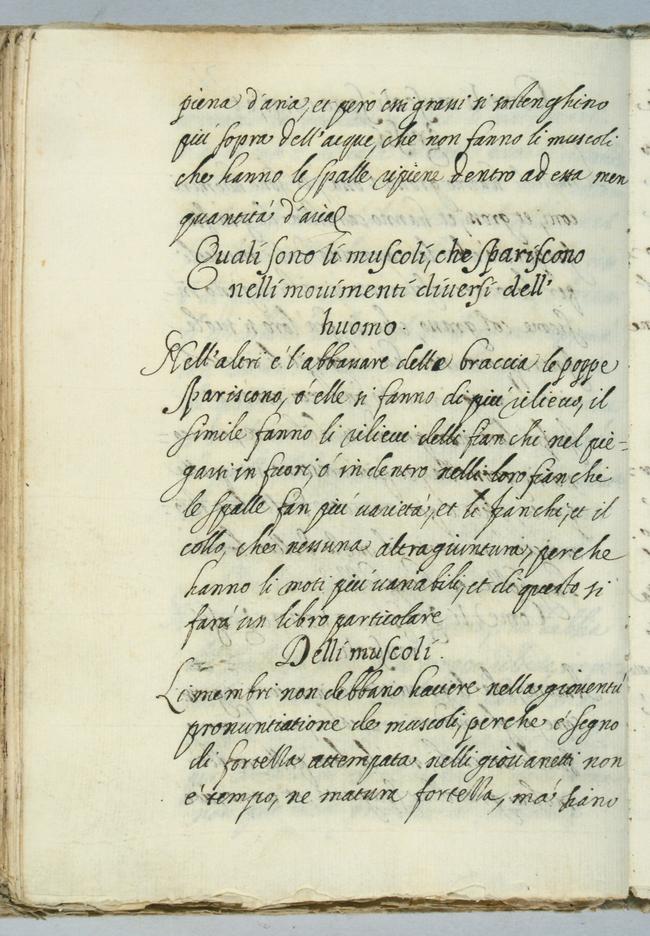 piena d'aria, et però essi grassi si sostenghino
più sopra dell'acque, che non fanno li muscoli
che hanno le spalle ripiene dentro ad essa men
quantità d'aria
Quali sono li muscoli, che spariscono
nelli movimenti diversi dell'
huomo.
Nell'altri è l'abbassare delle braccia le poppe
spariscono, ó elle si fanno di più rilievo, il
simile fanno li rilievi delli fianchi nel pie-
garsi in fuori, ó in dentro nelli loro fianchi
le spalle fan più varietà, et li fianchi, et il
collo, che nessuna altra giuntura, perche
hanno li moti più variabili, et di questo si
farà un libro particolare
Delli muscoli.
Li membri non debbano havere nella gioventù
pronuntiatione de muscoli, perche é segno
di fortezza attempata nelli giovanetti non
é tempo, ne matura fortezza, má siano